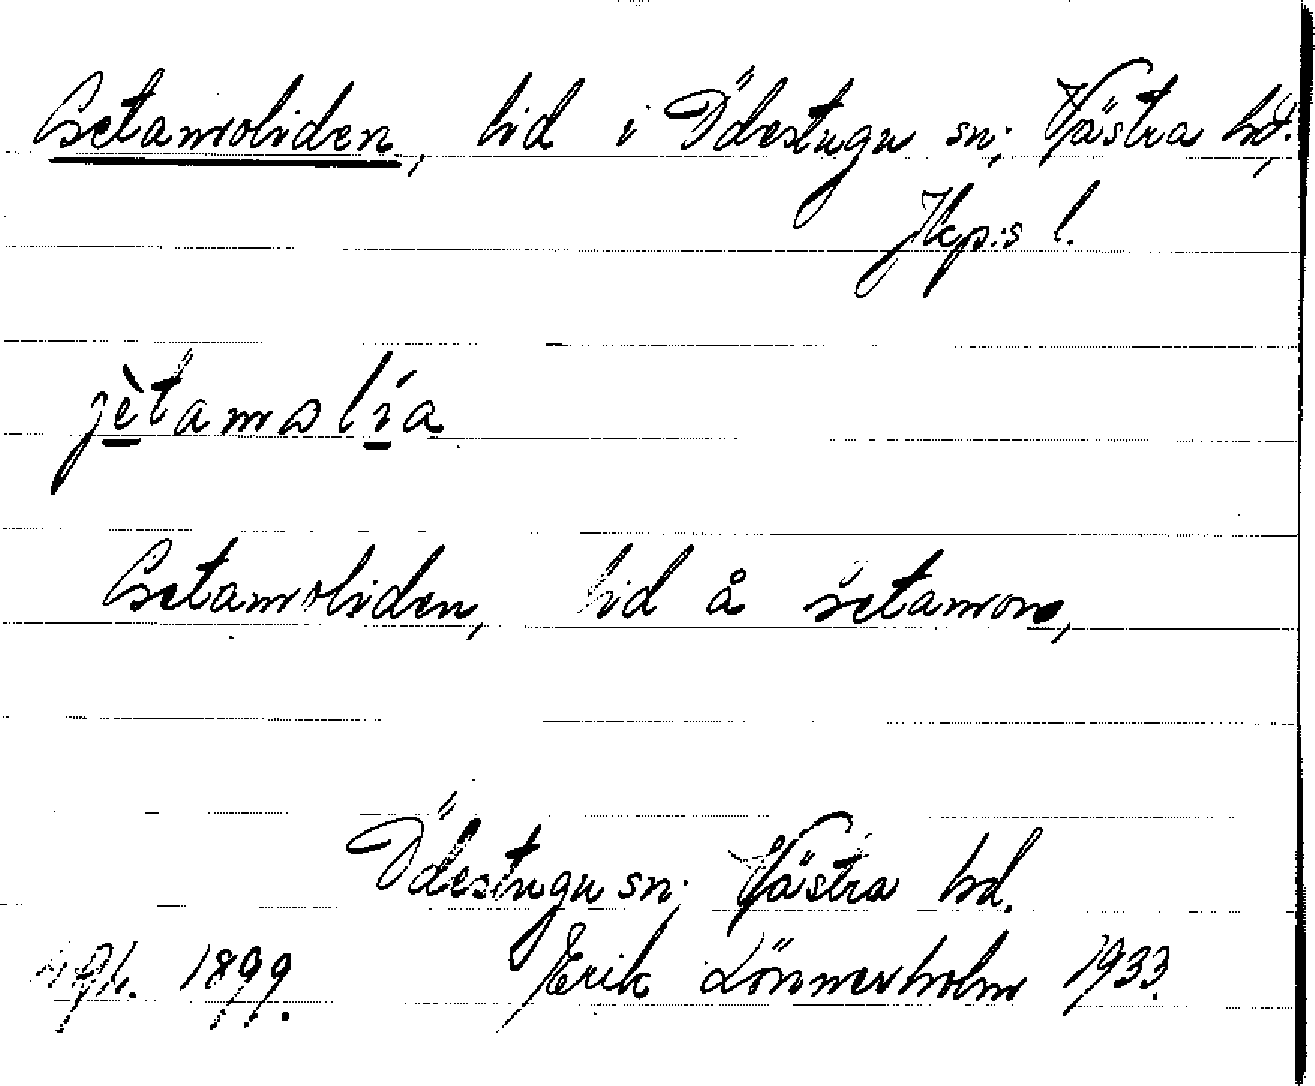 Getamoliden, lid i Ödestugu sn; Västra hd;
Jkp:s l.
jètamolía
Getamoliden, lid å Getamon,
Ödestugu sn; Västra hd.
1899. Erik Lönnerholm 1933.